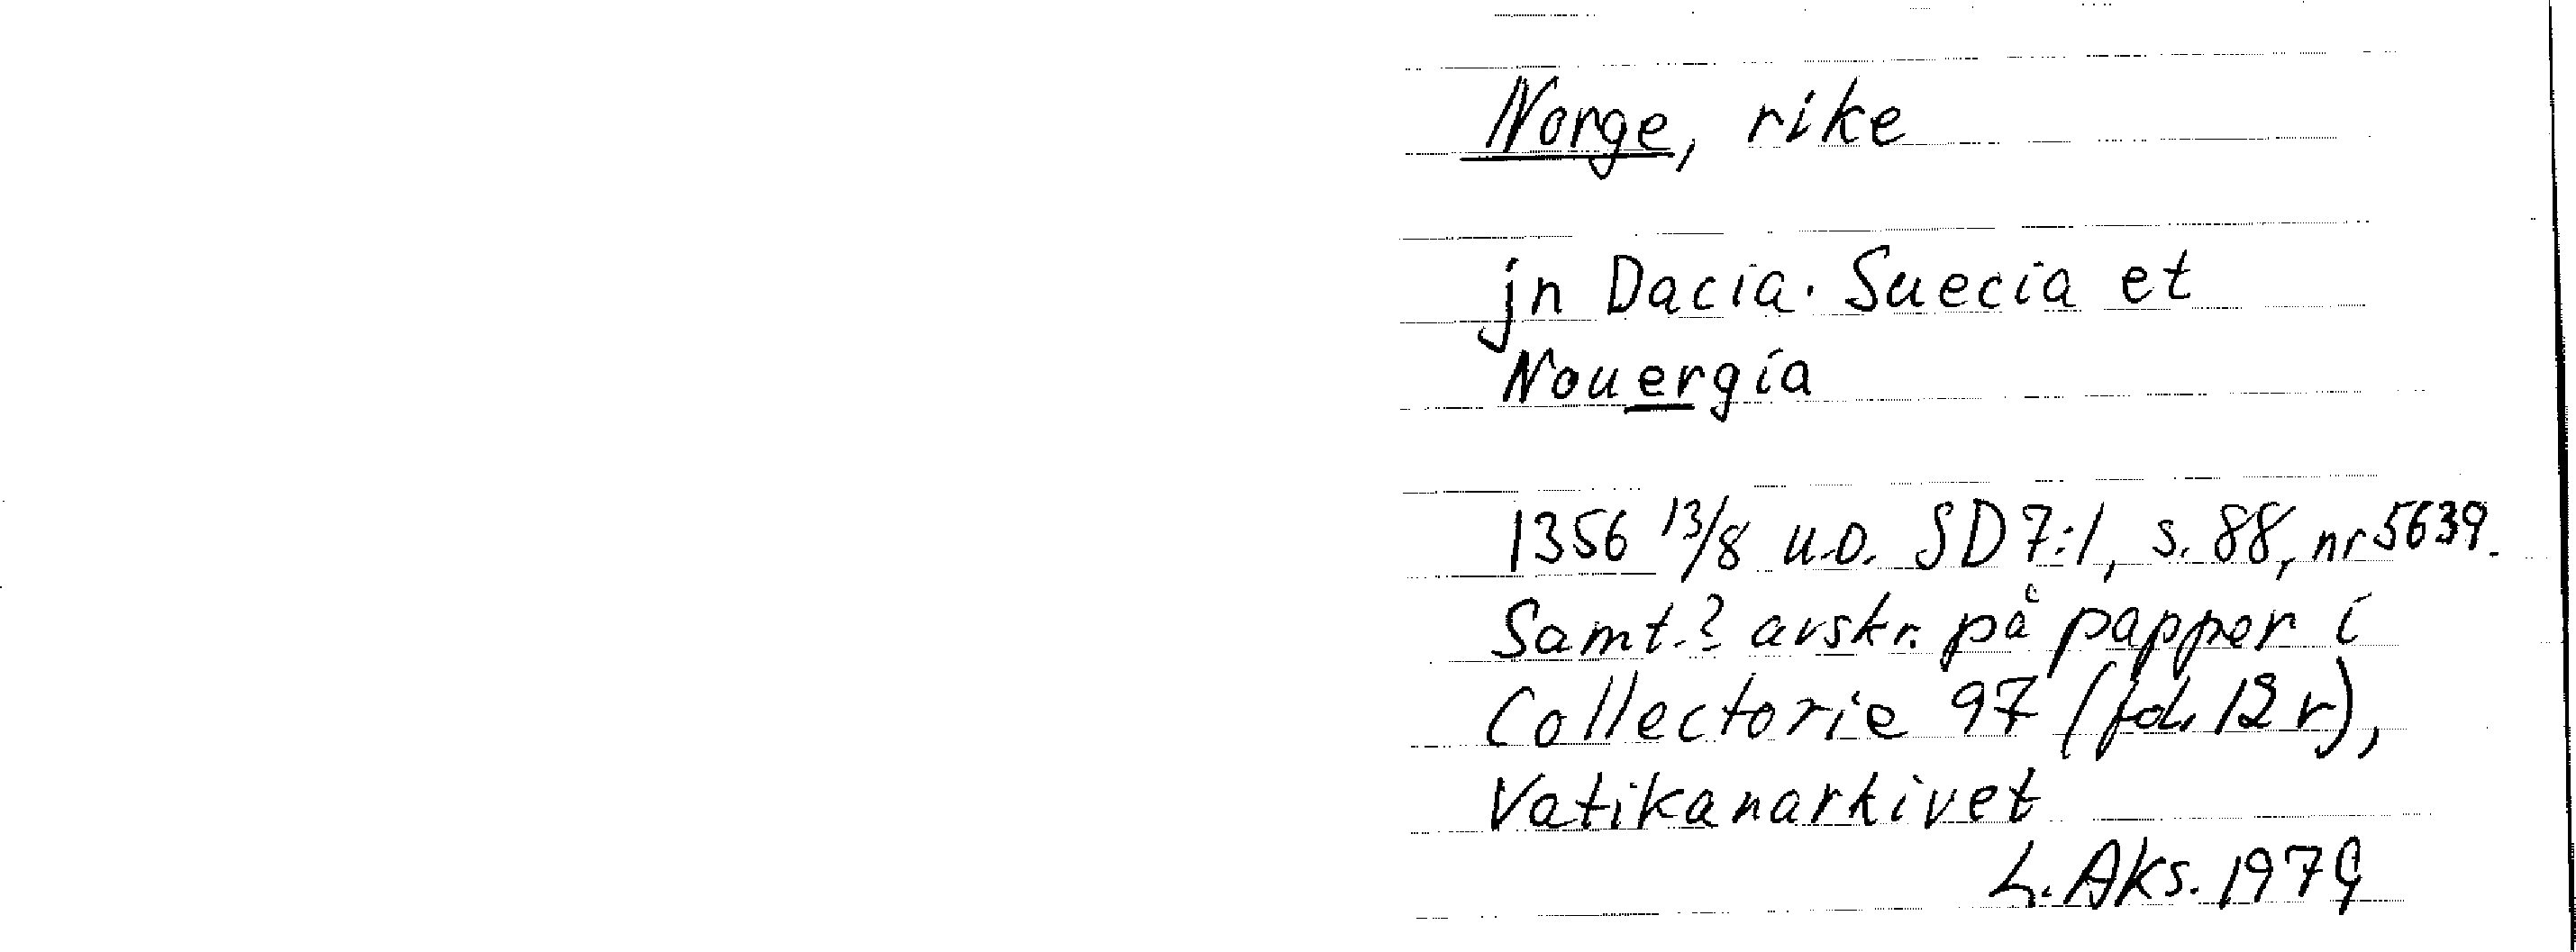 Norge, rike
jn Dacia. Suecia et
Nouergia
1356 13/8 u.o. SD 7:1, s. 88, nr 5639.
Samt.? avskr. på papper i
Collectorie 97 (fol. 12 r),
Vatikanarkivet
L. Aks. 1979